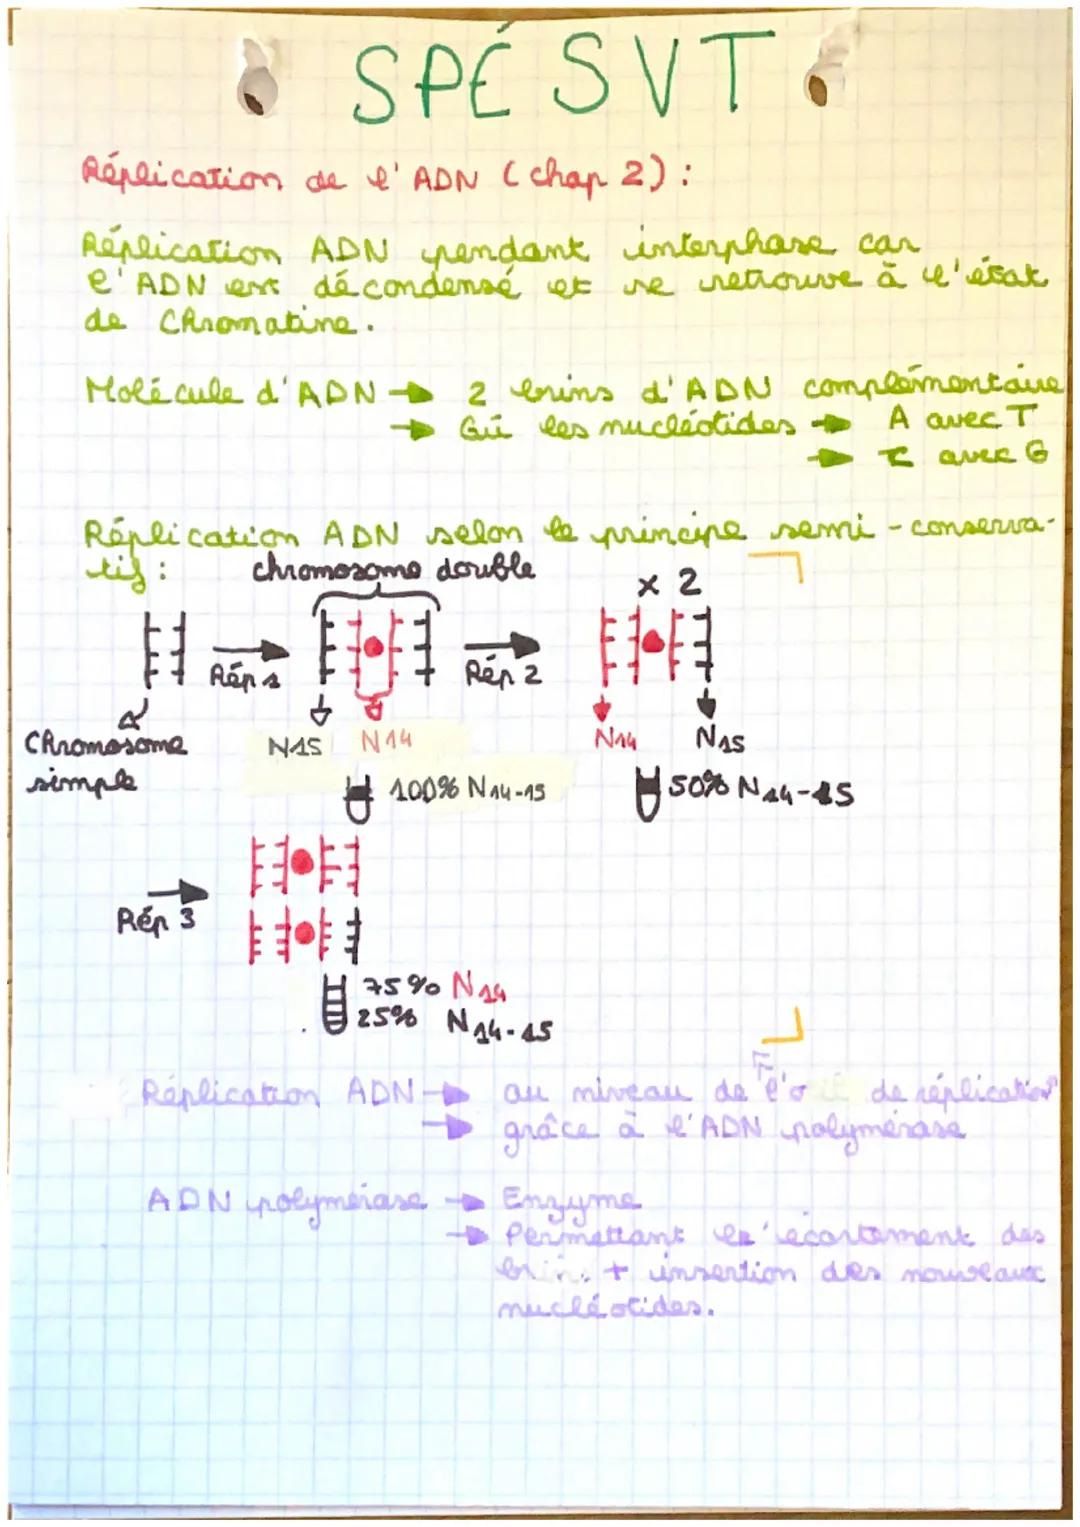 SPÉ SVT
Réplication de l'ADN (chap 2) :
Réplication ADN pendant interphase car
l'ADN est décondensé et se retrouve à l'état
de Chromatine.
Molécule d'ADN → 2 brins d'ADN complémentaire
→ les nucléotides → A avec T
→ C avec G
Réplication ADN selon le principe semi-conserva-
tif :
chromosome double
x 2
Rép 1
Rép 2
Chromosome
simple
N15 N14
N14 N15
100% N14-15
50% N14-15
Rép 3
75% N14
25% N14-15
Réplication ADN → au niveau de de réplication
→ grâce à l'ADN polymérase
ADN polymérase → Enzyme
→ Permettant l'écartement des
brin + insertion des nouveaux
nucléotides.